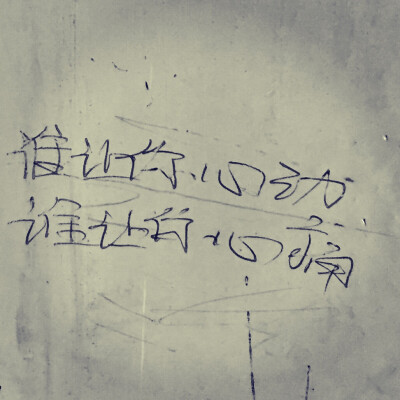 谁让你心动
谁让你心痛